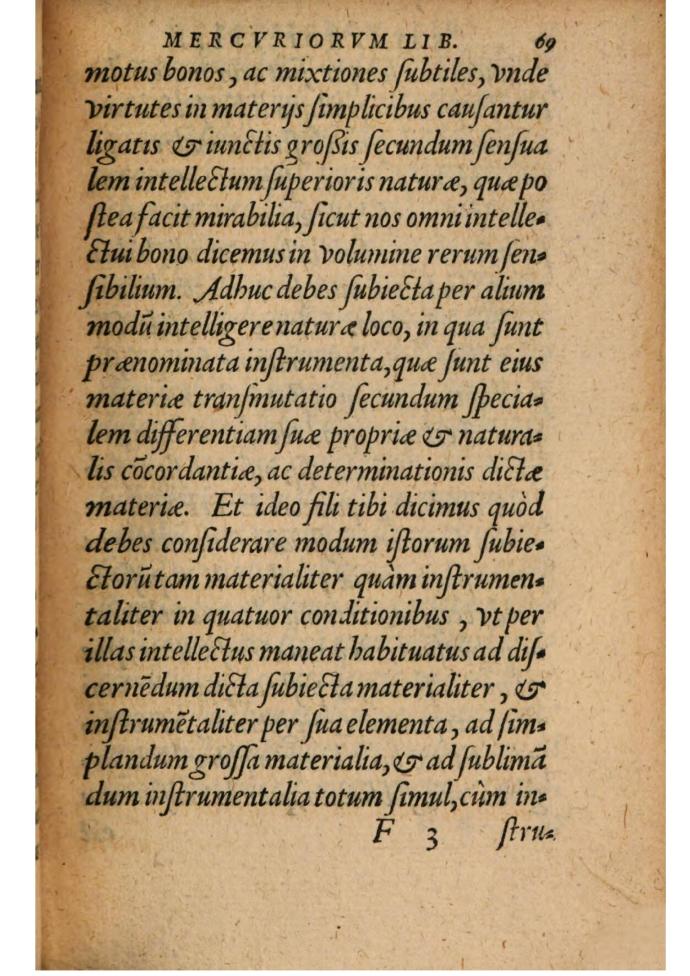 MERCVRIORVM LIB. 69
motus bonos, ac mixtiones ſubtiles, vnde
virtutes in materijs ſimplicibus cauſantur
ligatis & iunctis groſsis ſecundum ſenſua
lem intellectum ſuperioris naturæ, quæ po
ſtea facit mirabilia, ſicut nos omni intelle-
ctui bono dicemus in volumine rerum ſen-
ſibilium. Adhuc debes ſubiecta per alium
modũ intelligere naturæ loco, in qua ſunt
prænominata inſtrumenta, quæ ſunt eius
materiæ tranſmutatio ſecundum ſpecia-
lem differentiam ſuæ propriæ & natura-
lis cõcordantiæ, ac determinationis dictæ
materiæ. Et ideo fili tibi dicimus quòd
debes conſiderare modum iſtorum ſubie-
ctorũ tam materialiter quàm inſtrumen-
taliter in quatuor conditionibus, vt per
illas intellectus maneat habituatus ad diſ-
cernẽdum dicta ſubiecta materialiter, &
inſtrumẽtaliter per ſua elementa, ad ſim-
plandum groſſa materialia, & ad ſublimã
dum inſtrumentalia totum ſimul, cùm in-
F 3 ſtru-